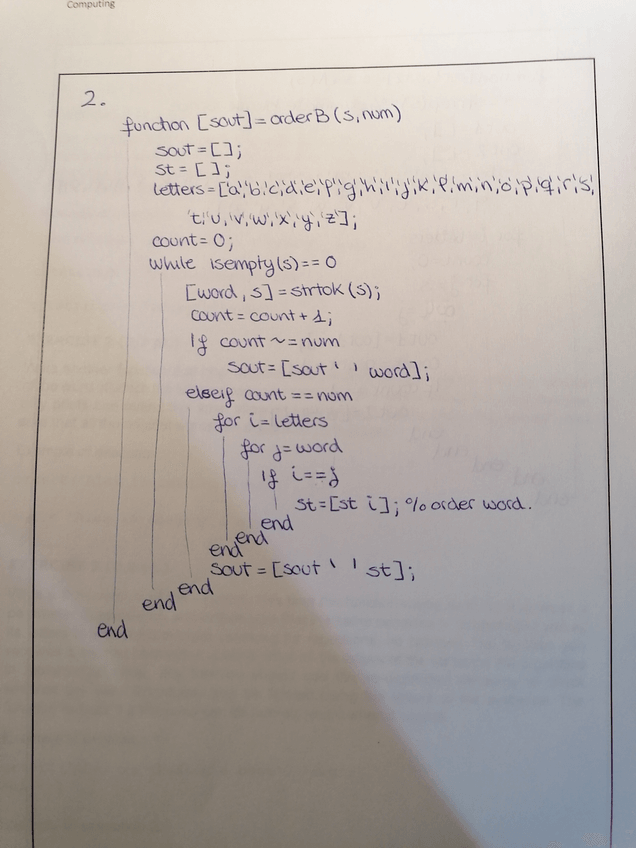 Computing
2.
function [sout]=orderB(s,num)
sout=[];
st=[];
letters=['a','b','c','d','e','f','g','h','i','j','k','l','m','n','o','p','q','r','s',
't','u','v','w','x','y','z'];
count=0;
while isempty(s)==0
[word,s]=strtok(s);
count=count+1;
If count ~=num
sout=[sout ' ' word];
elseif count ==num
for i=letters
for j=word
if i==j
st=[st i]; % order word.
end
end
end
sout=[sout ' ' st];
end
end
end